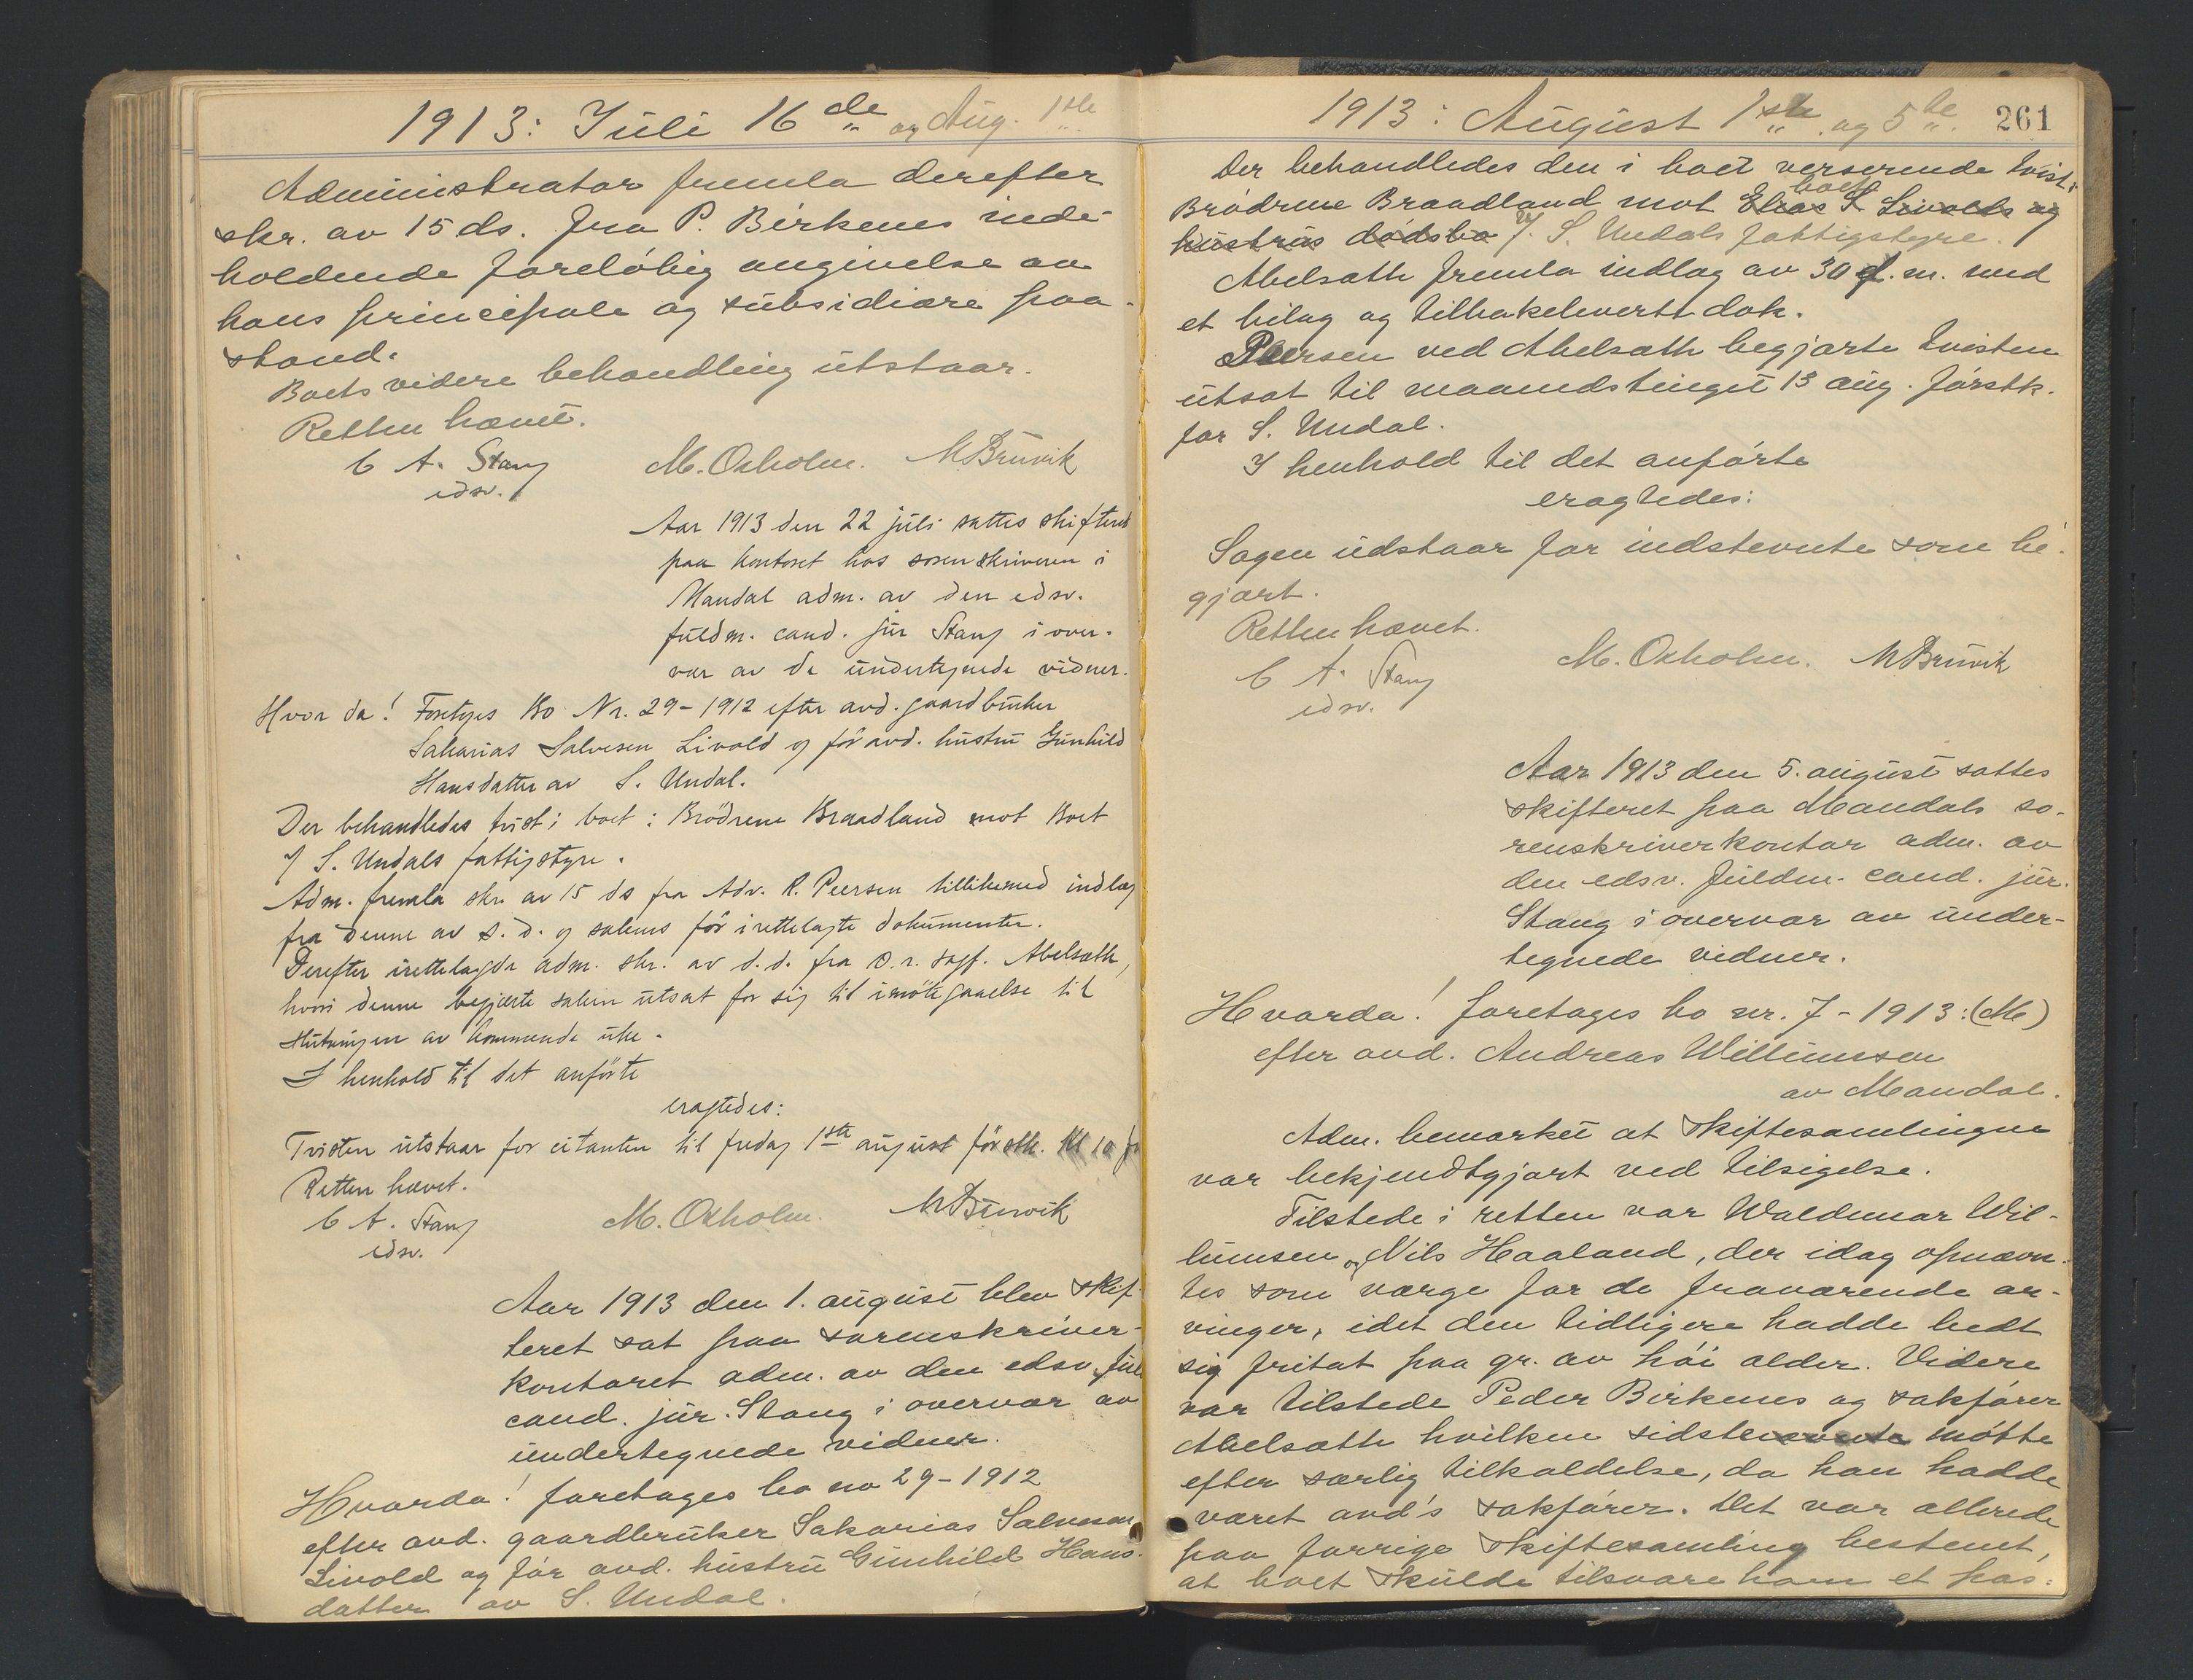 1913: Juli 16de og Aug. 1ste
Administrator fremla derefter
skr. av 15 ds. fra P. Birkenes inde-
holdende foreløbig angivelse av
hans principale og subsidiære paa-
stand.
Boets videre behandling utstaar.
Retten hævet.
C A. Stang M. Oxholm. M Bruvik
edsv.
Aar 1913 den 22 juli sattes skifteret
paa kontoret hos sorenskriveren i
Mandal adm. av den edsv.
fuldm. cand. jur Stang i over-
vær av de undertegnede vidner.
Hvor da! Foretoges Bo Nr. 29-1912 efter avd. gaardbruker
Sakarias Salvesen Livold og før avd. hustru Gunhild
Hansdatter av S. Undal.
Der behandledes tvist i boet: Brødrene Braadland mot Boet
v/ S. Undals fattigstyre.
Adm. fremla skr. av 15 ds fra Adv. R. Peersen tillikemed indlæg
fra denne av s. d. og sakens før irettelagte dokumenter.
Derefter irettelagde adm. skr. av d.d. fra o.r. sagf. Abelsæth,
hvori denne begjærte saken utsat for sig til imøtegaaelse til
slutningen av kommende uke.
I henhold til det anførte
eragtedes:
Tvisten utstaar for citanten til fredag 1ste august førstk. Kl 10 f
Retten hævet.
C A. Stang M. Oxholm. M Bruvik
edsv.
Aar 1913 den 1. august blev skif-
teret sat paa sorenskriver-
kontoret adm. av den edsv. ful
cand. jur. Stang i overvær av
undertegnede vidner.
Hvorda! foretages bo no 29-1912
efter avd. gaardbruker Sakarias Salvesen
Livold og før avd. hustru Gunhild Hans-
datter av S. Undal.
1913: August 1ste og 5te. 261
Der behandledes den i boet verserende tvist:
boet
Brødrene Braadland mot Elias S. Livolds og
hustrus dødsbo v/ S. Undals fattigstyre.
Abelsæth fremla indlæg av 30 f. m. med
et bilag og tilbakelevertt dok.
Peersen ved Abelsæth begjærte tvisten
utsat til maanedstinget 13 aug. førstk.
for S. Undal.
I henhold til det anførte
eragtedes:
Sagen udstaar for indstevnte som be-
gjært.
Retten hævet.
C A. Stang M. Oxholm. M Bruvik
edsv.
Aar 1913 den 5. august sattes
skifteret paa Mandals so-
renskriverkontor adm. av
den edsv. fuldm. cand. jur.
Stang i overvær av under-
tegnede vidner.
Hvorda! foretages bo nr. 7-1913: (M)
efter avd. Andreas Willumsen
av Mandal.
Adm. bemærket at skiftesamlingen
var bekjendtgjort ved tilsigelse.
Tilstede i retten var Waldemar Wil-
lumsen og Nils Haaland, der idag opnævn-
tes som værge for de fraværende ar-
vinger, idet den tidligere hadde bedt
sig fritat paa gr. av høi alder. Videre
var tilstede Peder Birkenes og sakfører
Abelsæth hvilken sidstenævnte møtte
efter særlig tilkaldelse, da han hadde
været avd's sakfører. Det var allerede
paa forrige skiftesamling bestemt,
at boet skulde tilsvare ham et pas-